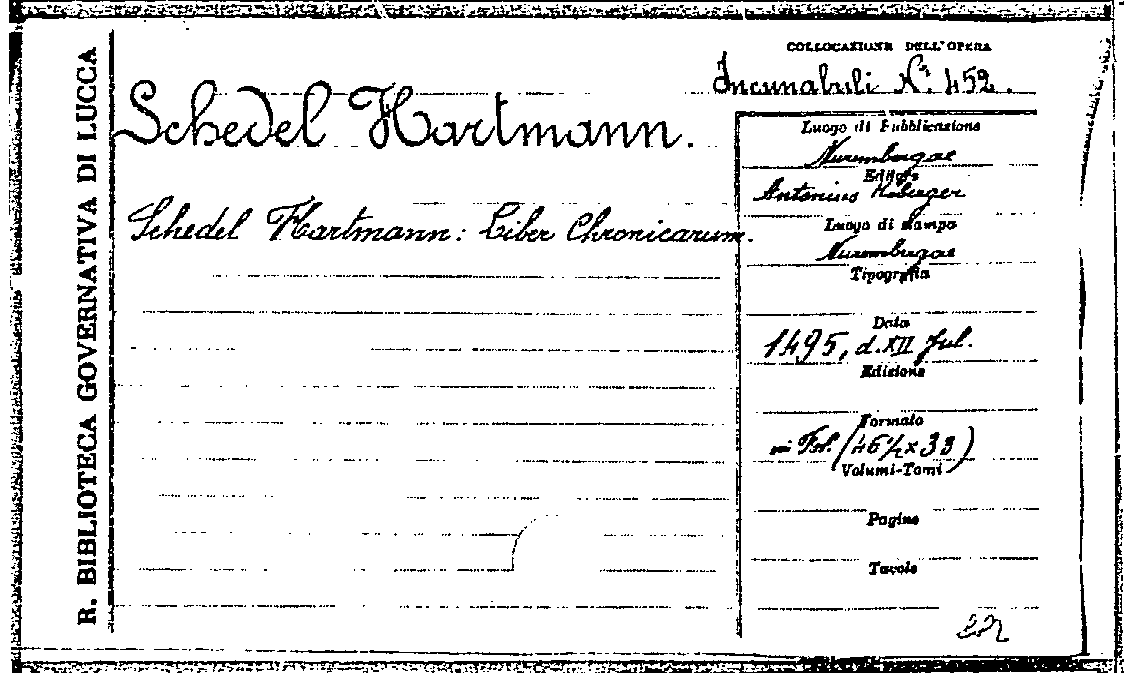 R. BIBLIOTECA GOVERNATIVA DI LUCCA
COLLOCAZIONE DELL'OPERA
Incunabuli N.° 452.
Schedel Hartmann.
Schedel Hartmann: Liber Chronicarum.
Luogo di Pubblicazione
Nurembergae
Editore
Antonius Koberger
Luogo di stampa
Nurembergae
Tipografia
Data
1495, d. XII Jul.
Edizione
Formato
in Fol. (46½ x 33)
Volumi-Tomi
Pagine
Tavole